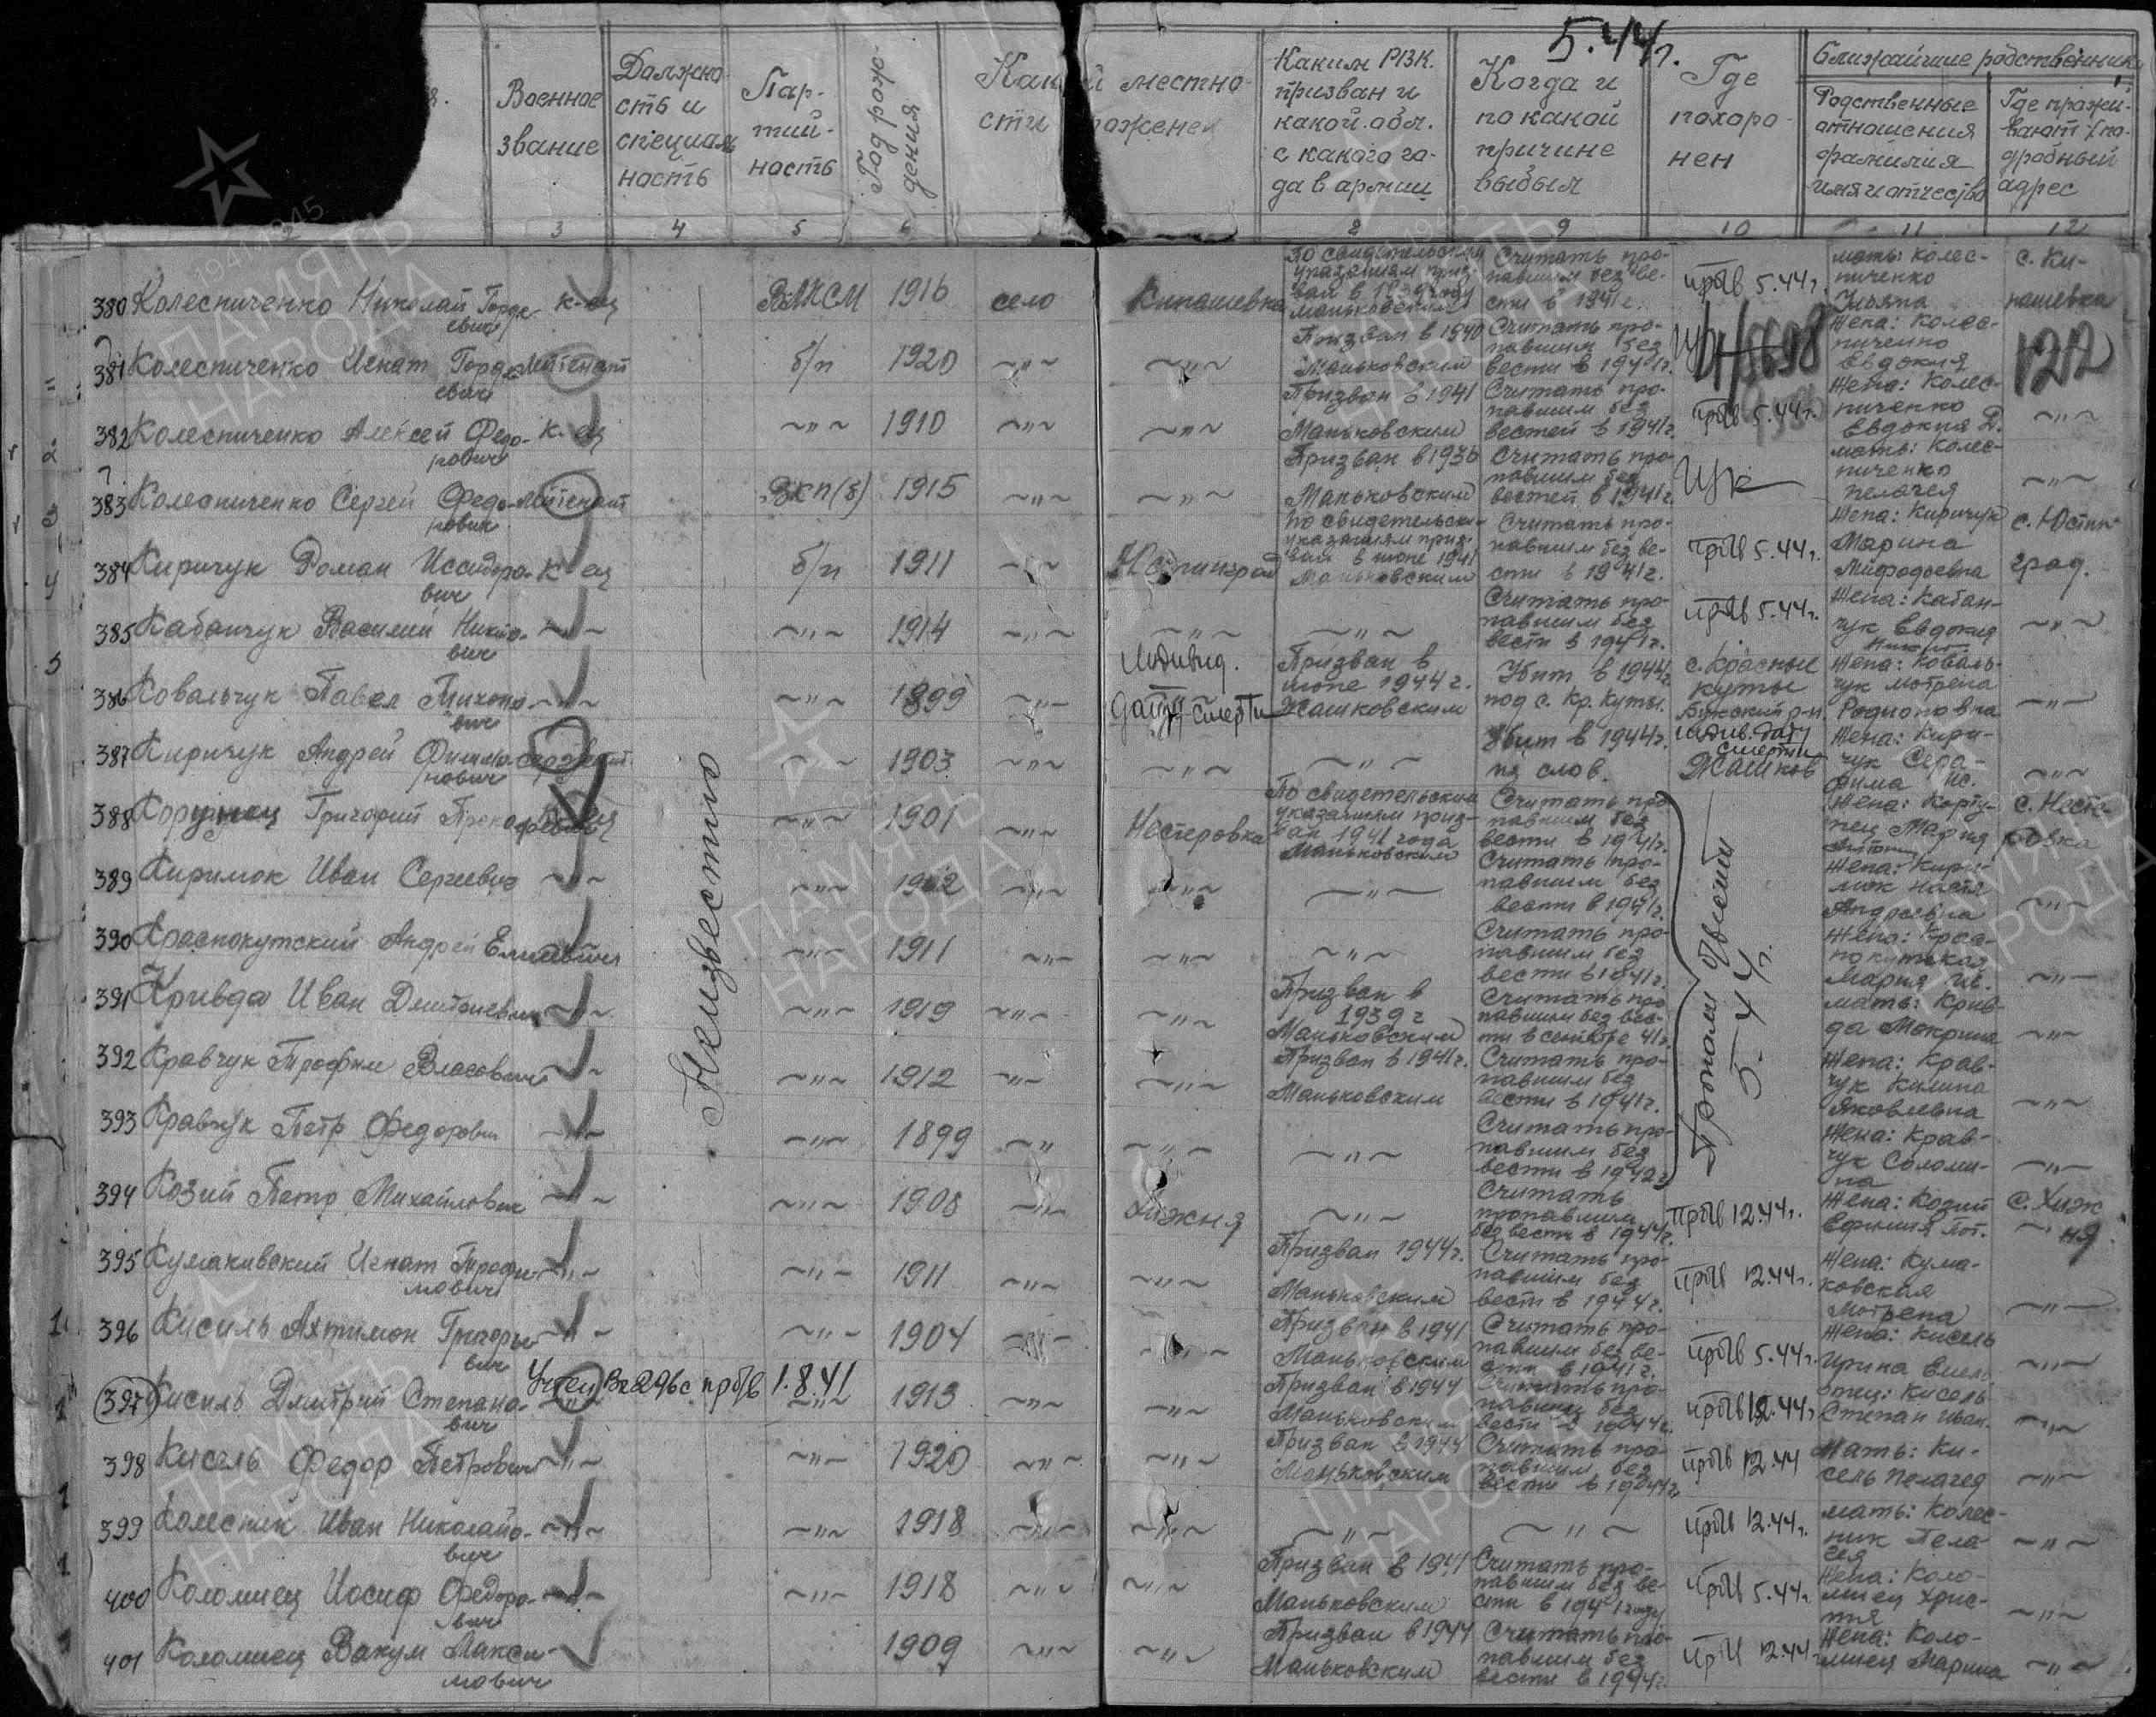 5.44г.
Военное звание
Должность и специальность
Партийность
Год рождения
Как й местно-
сти рожене
Каким РВК. призван и какой обл. с какого года в армии
Когда и по какой причине выбыл
Где похоронен
Ближайшие родственники
Родственные отношения фамилия имя и отчество
Где проживают подробный адрес
3 4 5 6 8 9 10 11 12
380 Колесниченко Николай Гордеевич к-ец ВЛКСМ 1916 село Кинашевка По свидетельским указаниям призван в 1939 году Маньковским Считать пропавшим без вести в 1941г. прбв 5.44г. мать: Колесниченко Ульяна с. Кинашевка
381 Колесниченко Игнат Гордеевич лейтенант б/п 1920 ~"~ ~"~ Призван в 1940 Маньковским Считать пропавшим без вести в 1941г. Жена: Колесниченко Евдокия 122
382 Колесниченко Алексей Федорович к-ец ~"~ 1910 ~"~ ~"~ Призван в 1941 Маньковским Считать пропавшим без вестей в 1941г. прбв 5.44г. Жена: Колесниченко Евдокия Д. ~"~
383 Колесниченко Сергей Федорович лейтенант ВКП(б) 1915 ~"~ ~"~ Призван в 1936 Маньковским Считать пропавшим без вестей в 1941г. мать: Колесниченко Пелагея ~"~
384 Киричук Роман Исидорович к-ец б/п 1911 ~"~ Юстинград По свидетельским указаниям призван в июне 1941 Маньковским Считать пропавшим без вести в 1941г. прбв 5.44г. Жена: Киричук Марина Мифодьевна с. Юстинград.
385 Кабанчук Василий Никитович ~"~ ~"~ 1914 ~"~ ~"~ ~"~ Считать пропавшим без вести в 1941г. прбв 5.44г. Жена: Кабанчук Евдокия ~"~
386 Ковальчук Павел Тихонович ~"~ ~"~ 1899 ~"~ Индивид. дату смерти Призван в июне 1944г. Жашковским Убит в 1944г. под с. Кр. Куты. с. Красные Куты Букский р-н. Жена: Ковальчук Мотрена Родионовна ~"~
387 Киричук Андрей Филимонович сержант ~"~ 1903 ~"~ ~"~ ~"~ Убит в 1944г. индив. дату смерти Жашков Жена: Киричук Серафима Ис. ~"~
388 Корунец Григорий Прокофьевич к-ец ~"~ 1901 ~"~ Нестеровка По свидетельским указаниям призван 1941 года Маньковским Считать пропавшим без вести в 1941г. Жена: Корунец Мария с. Нестеровка
389 Киримок Иван Сергеевич ~"~ ~"~ 1902 ~"~ ~"~ ~"~ Считать пропавшим без вести в 1941г. Жена: Киримок Настя Андреевна ~"~
390 Краснокутский Андрей ~"~ 1911 ~"~ ~"~ ~"~ Считать пропавшим без вести в 1941г. Жена: Краснокутская Мария Ив. ~"~
391 Кривда Иван Дмитриевич ~"~ ~"~ 1919 ~"~ ~"~ Призван в 1939г Маньковским Считать пропавшим без вести в сентябре 41г. мать: Кривда Мокрина ~"~
392 Кравчук Трофим Власович ~"~ ~"~ 1912 ~"~ ~"~ Призван в 1941г. Маньковским Считать пропавшим без вести в 1941г. Жена: Кравчук Килина Яковлевна ~"~
393 Кравчук Петр Федорович ~"~ ~"~ 1899 ~"~ ~"~ ~"~ Считать пропавшим без вести в 1942г. Жена: Кравчук Соломина ~"~
Неизвестно
Пропал бвести 5-44г.
394 Козий Петр Михайлович ~"~ ~"~ 1908 ~"~ Хижня ~"~ Считать пропавшим без вести в 1944г. прбв 12.44г. Жена: Козий Ефимия Пот. с. Хижня
395 Кумакивский Игнат Трофимович ~"~ ~"~ 1911 ~"~ ~"~ Призван 1944г. Маньковским Считать пропавшим без вести в 1944г. прбв 12.44г. Жена: Кумаковская Мотрена ~"~
396 Кисиль Ахтимон Григорьевич ~"~ ~"~ 1904 ~"~ ~"~ Призван в 1941 Маньковским Считать пропавшим без вести в 1941г. прбв 5.44г. Жена: Кисель Ирина ~"~
Учтен Вх296с прб/в 1.8.41
397 Кисиль Дмитрий Степанович ~"~ ~"~ 1913 ~"~ ~"~ Призван в 1944 Маньковским Считать пропавшим без вести в 1944г. прбв 12.44г отец: Кисель Степан Иван. ~"~
398 Кисель Федор Петрович ~"~ ~"~ 1920 ~"~ ~"~ Призван в 1944 Маньковским Считать пропавшим без вести в 1944г. прбв 12.44 Мать: Кисель Пелагея ~"~
399 Колесник Иван Николайович ~"~ ~"~ 1918 ~"~ ~"~ ~"~ ~"~ прбв 12.44г. мать: Колесник Пелагея ~"~
400 Коломиец Иосиф Федорович ~"~ ~"~ 1918 ~"~ ~"~ Призван в 1941 Маньковским Считать пропавшим без вести в 1941 году прбв 5.44г. Жена: Коломиец Христя ~"~
401 Коломиец Вакум Максимович 1909 ~"~ ~"~ Призван в 1944 Маньковским Считать пропавшим без вести в 1944г. прбв 12.44г. Жена: Коломиец Марина ~"~
ПАМЯТЬ НАРОДА
1941-1945